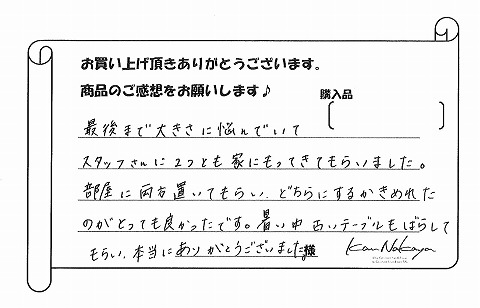 お買い上げ頂きありがとうございます。
商品のご感想をお願いします♪
購入品
最後まで大きさに悩んでいて
スタッフさんに2つとも家にもってきてもらいました。
部屋に両方置いてもらい、どちらにするかきめれた
のがとっても良かったです。暑い中古いテーブルもばらして
もらい、本当にありがとうございました
様
KanNakaya